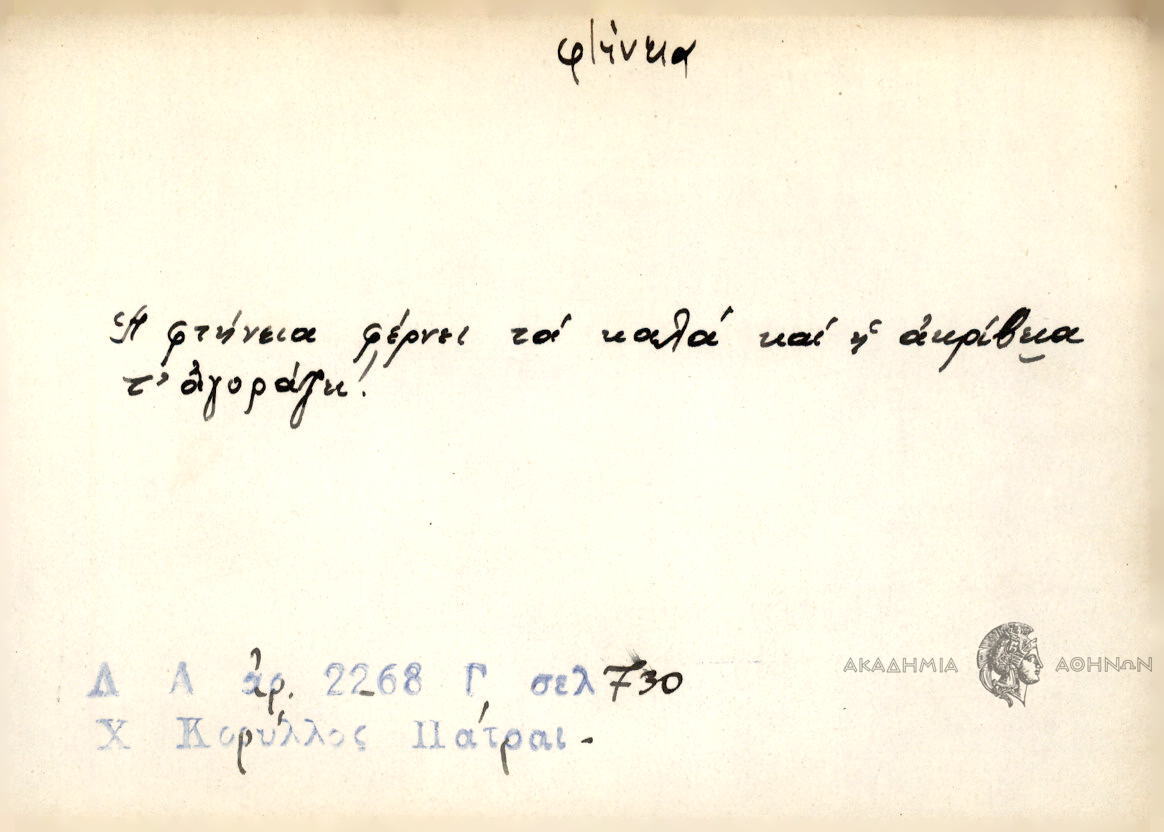 φτήνεια
Ἡ φτήνεια φέρνει τά καλά καί ἡ ἀκρίβεια
τ' ἀγοράζει!
Λ Α ἀρ. 2268 Γ σελ 730
Χ Κορύλλος Πάτραι -
ΑΚΑΔΗΜΙΑ ΑΘΗΝΩΝ